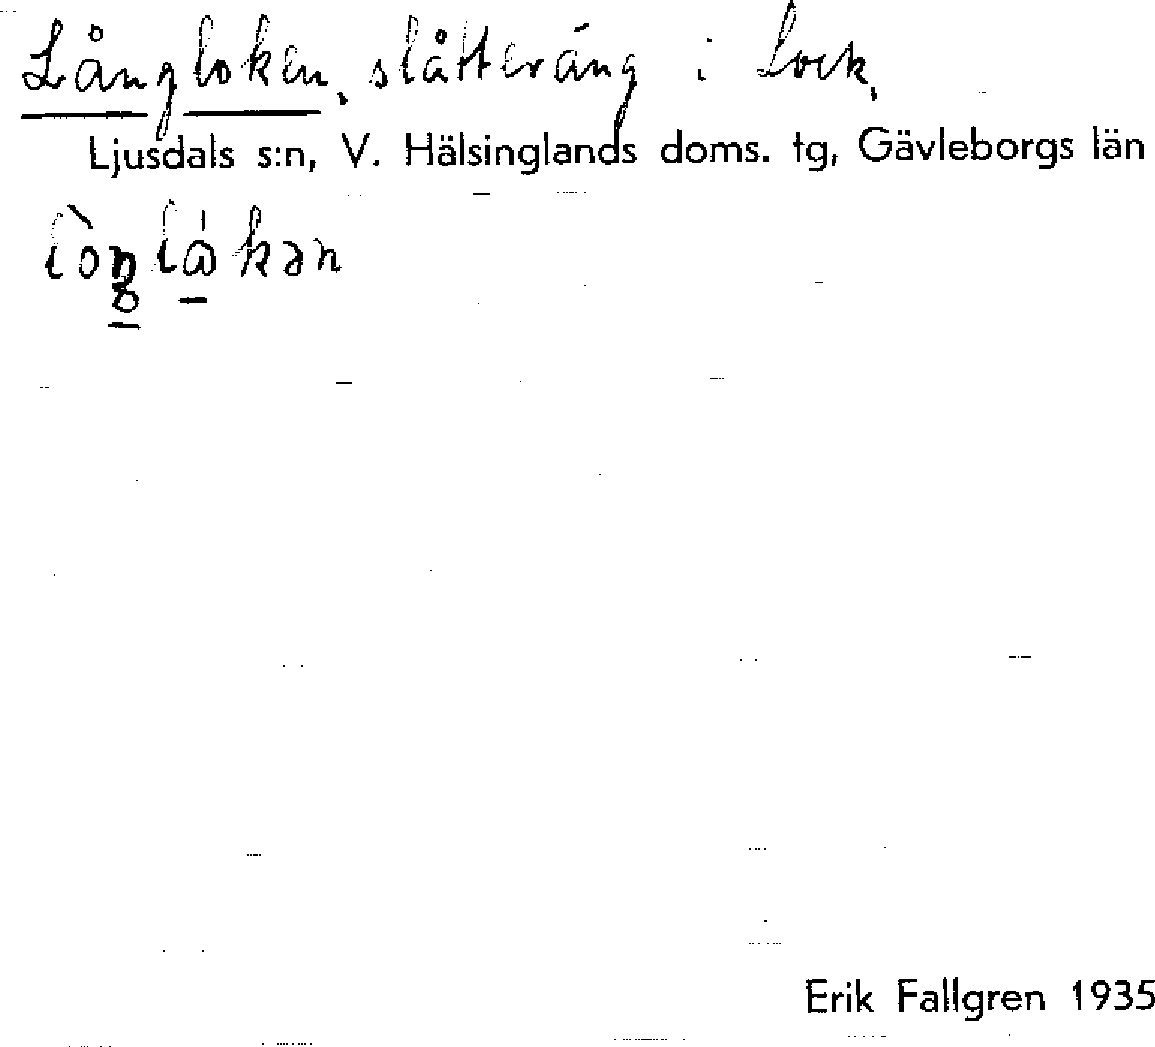 Långloken, slåtteräng i Lock,
Ljusdals s:n, V. Hälsinglands doms. tg, Gävleborgs län
Erik Fallgren 1935